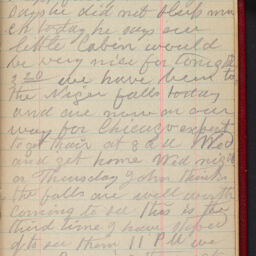 says he did not sleep mu
ch today he says our
little Cabin would
be very nice for tonight
3 20 we have been to
the Niger falls today
and are now on our
way for Chicago expect
to get thair at 8 a m Wed
and get home Wed night
or Thursday John thinks
the falls are well worth
coming to see this is the
third time I have stoped
of to see them 11 P M we